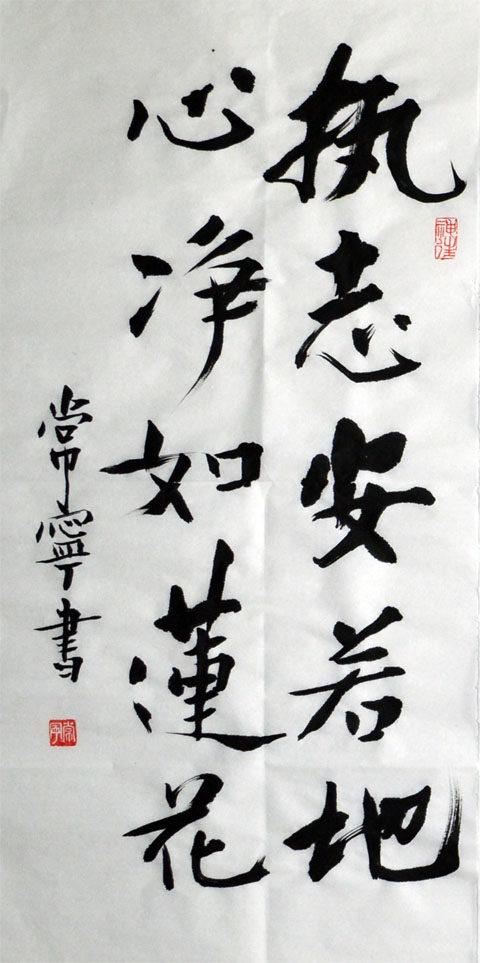 执志安若地
心净如蓮花
常寧書